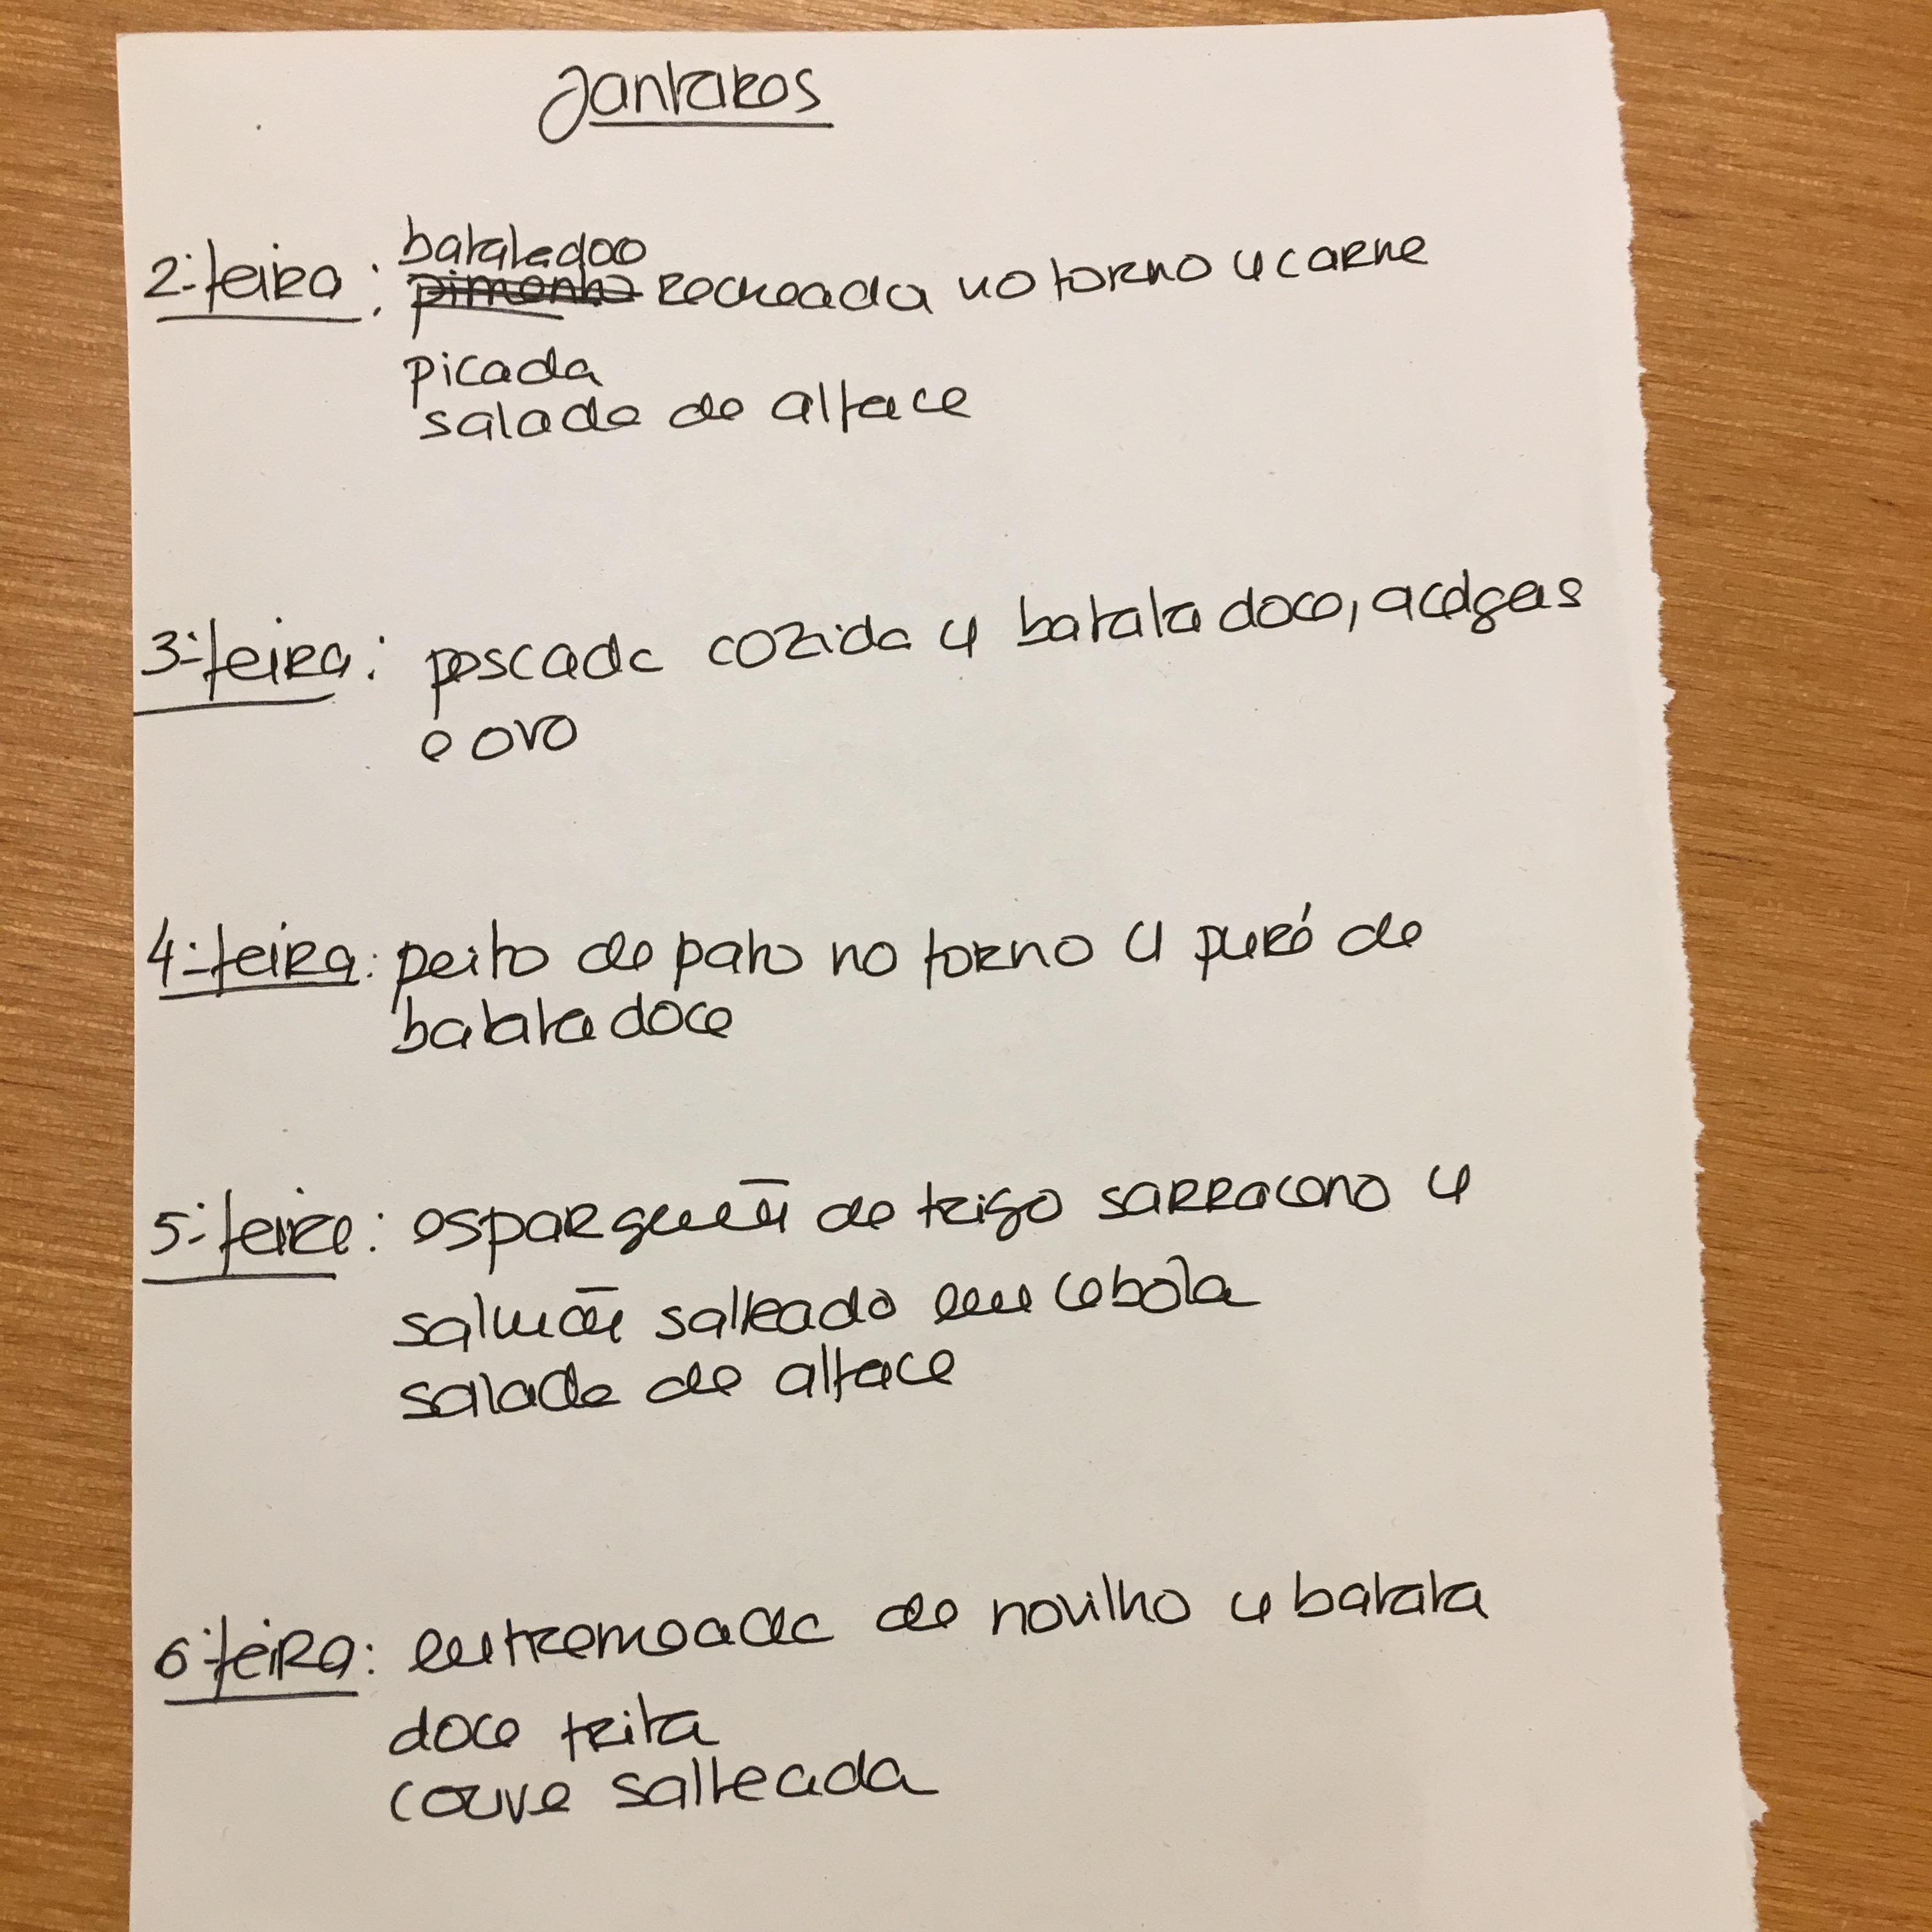 Jantares
batata doce
2ª feira: pimento recheada no forno c/ carne
picada
salada de alface
3ª feira: pescada cozida c/ batata doce, acelgas
e ovo
4ª feira: peito de pato no forno c/ puré de
batata doce
5ª feira: esparguete de trigo sarraceno c/
salmão salteado em cebola
salada de alface
6ª feira: entremeada de novilho c/ batata
doce frita
couve salteada